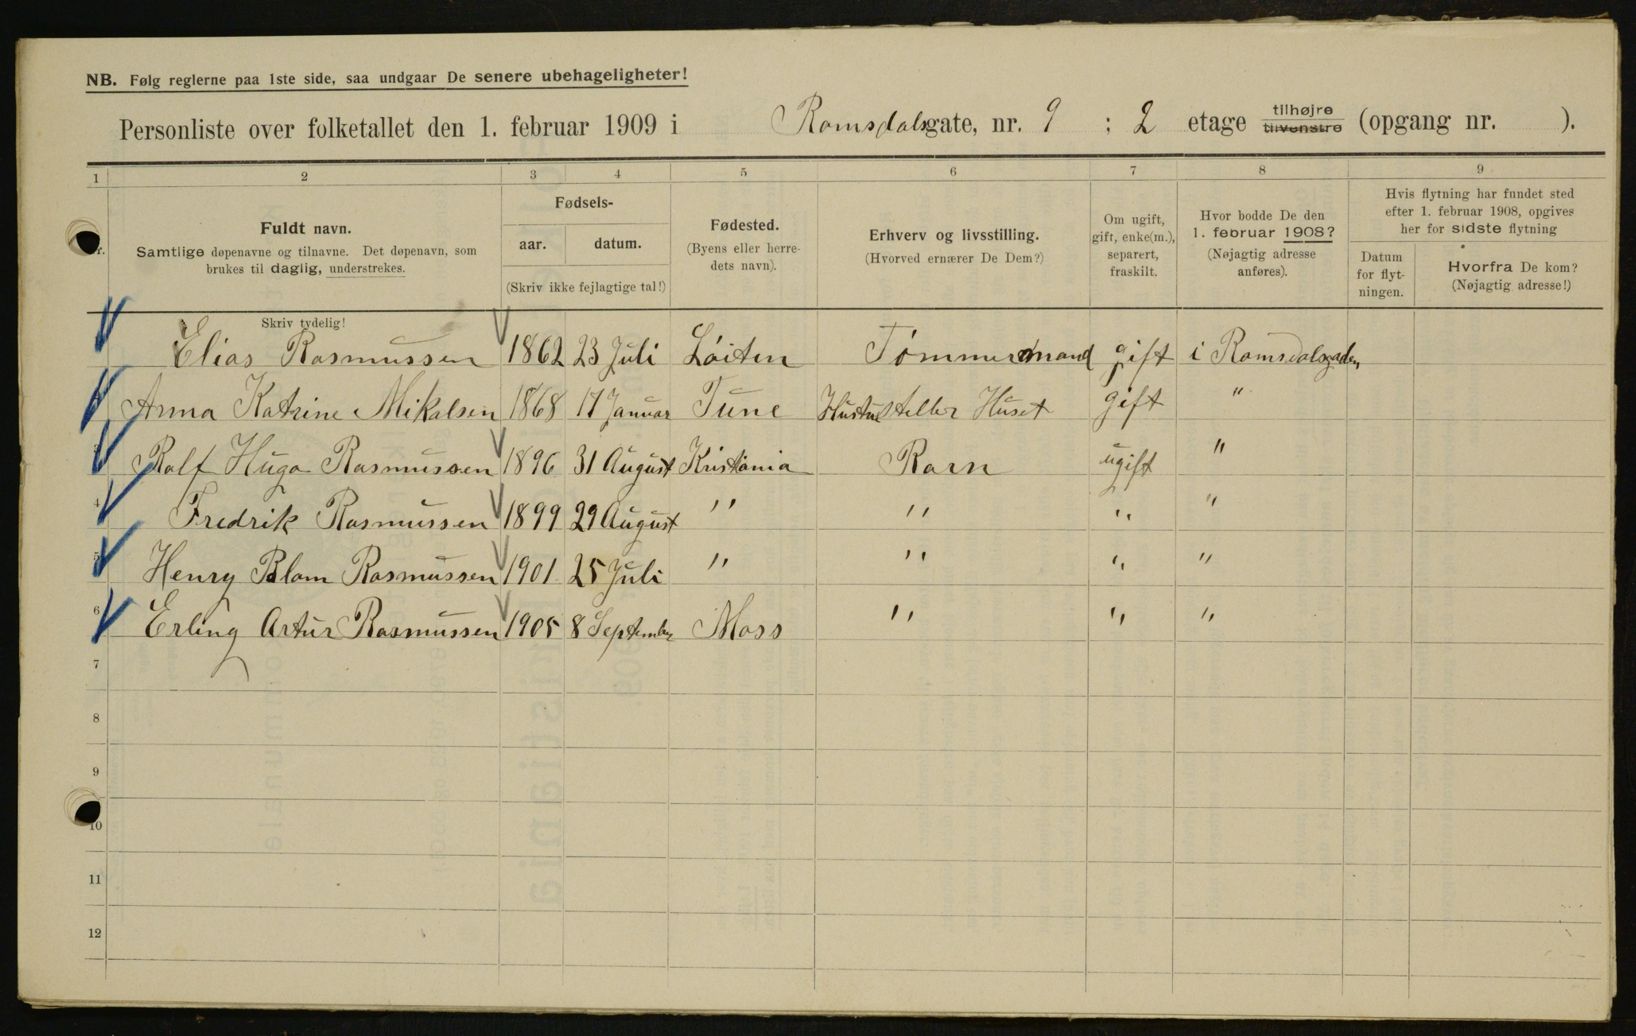 NB. Følg reglerne paa 1ste side, saa undgaar De senere ubehageligheter!
Personliste over folketallet den 1. februar 1909 i Romsdalsgate, nr. 9 ; 2 etage tilhøjre tilvenstre (opgang nr. ).
1 2 3 4 5 6 7 8 9
Nr.
Fuldt navn.
Samtlige døpenavne og tilnavne. Det døpenavn, som
brukes til daglig, understrekes.
Skriv tydelig!
Fødsels-
aar. datum.
(Skriv ikke fejlagtige tal!)
Fødested.
(Byens eller herre-
dets navn).
Erhverv og livsstilling.
(Hvorved ernærer De Dem?)
Om ugift,
gift, enke(m.),
separert,
fraskilt.
Hvor bodde De den
1. februar 1908?
(Nøjagtig adresse
anføres).
Hvis flytning har fundet sted
efter 1. februar 1908, opgives
her for sidste flytning
Datum
for flyt-
ningen.
Hvorfra De kom?
(Nøjagtig adresse!)
Elias Rasmussen 1862 23 Juli Löiten Tömmermand gift i Romsdalsgaden
Anna Katrine Mikalsen 1868 17 Januar Tune Hustru steller Huset gift "
Rolf Hugo Rasmussen 1896 31 August Kristiania Barn ugift "
4 Fredrik Rasmussen 1899 29 August " " " "
5 Henry Blom Rasmussen 1901 25 Juli " " " "
6 Erling Artur Rasmussen 1905 8 September Moss " " "
7
8
9
10
11
12